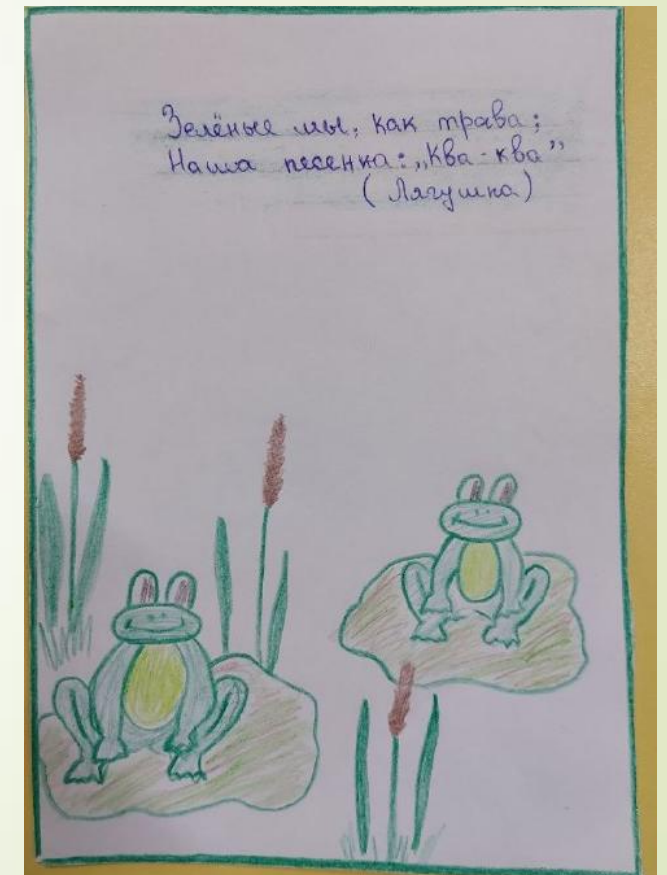 Зелёные мы, как трава;
Наша песенка: „Ква-ква”
(Лягушка)